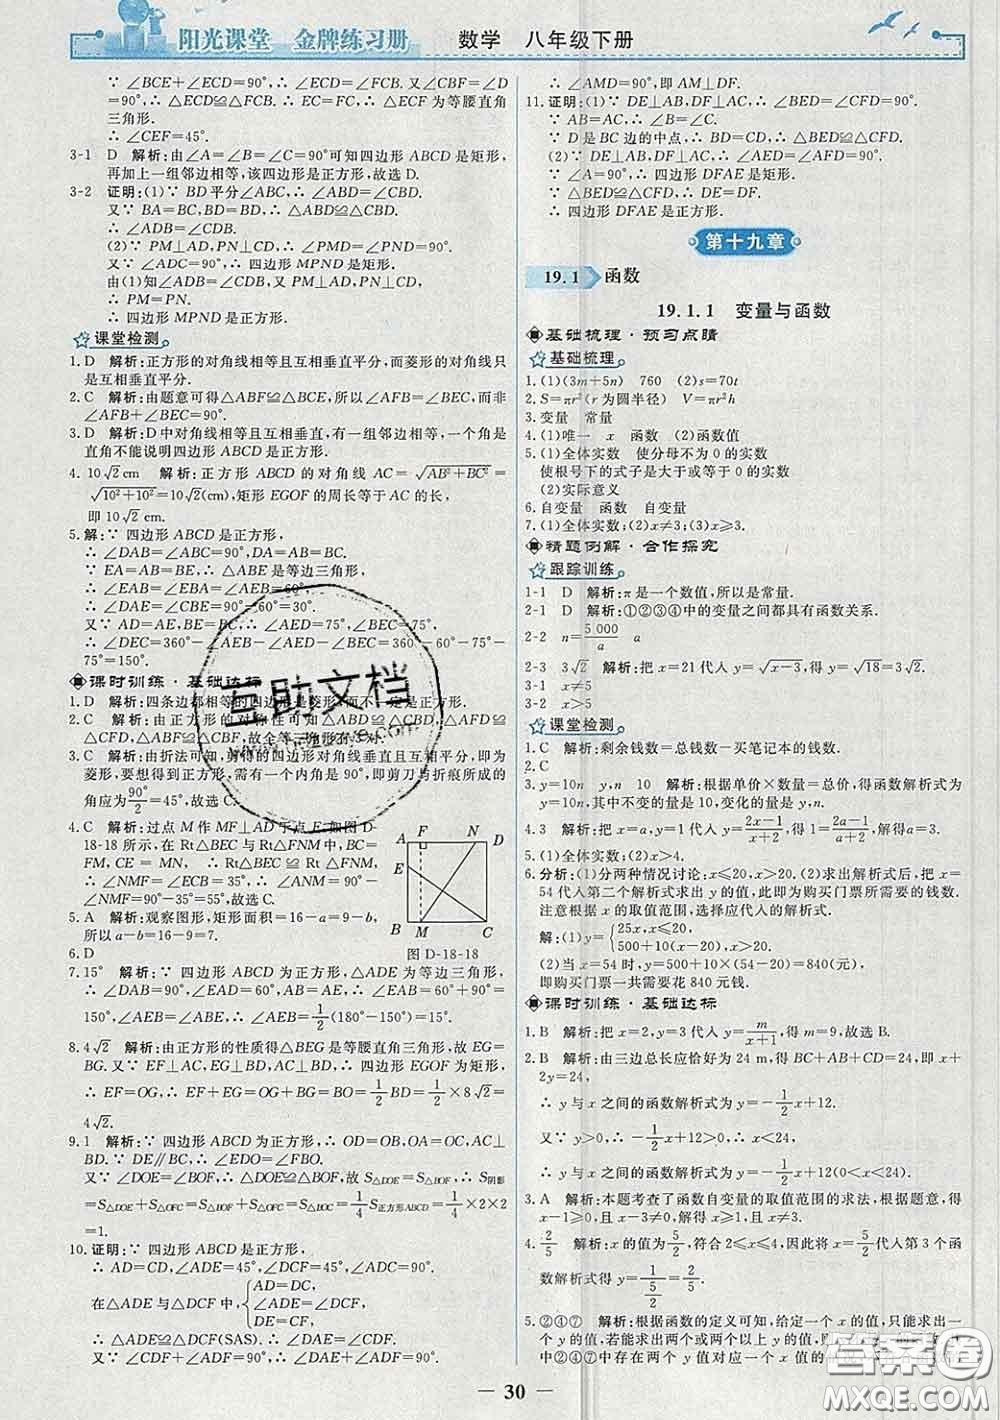 阳光课堂 金牌练习册 数学 八年级下册
∵ ∠BCE+∠ECD=90°,∴ ∠ECD=∠FCB. 又∵ ∠CBF=∠D
=90°,∴ △ECD≌△FCB. ∴ EC=FC,∴ △ECF 为等腰直角
三角形.
∴ ∠CEF=45°.
3-1 D 解析:由∠A=∠B=∠C=90°可知四边形 ABCD 是矩形,
再加上一组邻边相等,该四边形是正方形,故选 D.
3-2 证明:(1)∵ BD平分∠ABC,∴ ∠ABD=∠CBD.
又∵ BA=BC,BD=BD,∴ △ABD≌△CBD.
∴ ∠ADB=∠CDB.
(2)∵ PM⊥AD,PN⊥CD,∴ ∠PMD=∠PND=90°.
又∵ ∠ADC=90°,∴ 四边形 MPND 是矩形.
由(1)知∠ADB=∠CDB,又∵ PM⊥AD,PN⊥CD,
∴ PM=PN.
∴ 四边形 MPND 是正方形.
课堂检测
1. D 解析:正方形的对角线相等且互相垂直平分,而菱形的对角线只
是互相垂直平分.
2. C 解析:由题意可得△ABF≌△BCE,所以∠AFB=∠BEC,而非
∠AFB+∠BEC=90°.
3. D 解析:D中对角线相等且互相垂直,有一组邻边相等,一个角是
直角不能说明四边形ABCD是正方形.
4. 10√2 cm 解析:正方形 ABCD 的对角线 AC=√(AB²+BC²)=
√(10²+10²)=10√2(cm),矩形 EGOF 的周长等于 AC 的长,
即 10√2 cm.
5. 解:∵ 四边形 ABCD 是正方形,
∴ ∠DAB=∠ABC=90°,DA=AB=BC.
∵ EA=AB=BE,∴ △ABE 是等边三角形,
∴ ∠EAB=∠EBA=∠AEB=60°,
∴ ∠DAE=∠CBE=90°-60°=30°.
又∵ AD=AE,BE=BC,∴ ∠AED=75°,∠BEC=75°,
∴ ∠DEC=360°-∠AEB-∠AED-∠BEC=360°-60°-75°-
75°=150°.
课时训练·基础达标
1. D 解析:四条边都相等的四边形是菱形,而不一定是正方形.
2. C 解析:由正方形的对称性可知△ABD≌△CBD,△ABF≌
△CBF,△AFD≌△CFD,故全等三角形有3对.
3. C 解析:由折法可知,剪得的四边形对角线垂直且互相平分,即为
菱形,要想得到正方形,需要有一个内角是 90°,即剪刀与折痕所成的
角应为90°/2=45°,故选 C.
4. C 解析:过点 M 作 MF⊥AD 于点 F,如图 D-
18-18 所示,在 Rt△BEC 与 Rt△FNM 中,BC=
FM,CE=MN,∴ Rt△BEC≌Rt△FNM,
∴ ∠NMF=∠ECB=35°,∴ ∠MNF=90°-
∠NMF=90°-35°=55°,故选 C.
5. A 解析:观察图形,矩形面积=16-a=9-b,
所以 a-b=16-9=7.
A F N D B M C
图 D-18-18
6. D
7. 15° 解析:∵ 四边形 ABCD 为正方形,△ADE 为等边三角形,
∴ ∠DAB=90°,∠DAE=60°,∴ ∠BAE=90°+60°=
150°,∠ABE=∠AEB,∴ ∠ABE=1/2(180°-150°)=15°.
8. 4√2 解析:由正方形的性质得△BEG是等腰直角三角形,故 EG=
BG. 又∵ EF⊥AC,EG⊥BD,AC⊥BD,∴ 四边形 EGOF 为矩形,
∴ EF=OG,∴ EF+EG=OG+BG=BO=1/2 BD=1/2×8√2=
4√2.
9. 1 解析:∵ 四边形 ABCD 为正方形,∴ OD=OB,OA=OC,AC⊥
BD. ∵ DE∥BC,∴ ∠EDO=∠FBO.
又∵ ∠DOE=∠BOF,∴ △DOE≌△BOF,故 S△DOE=S△BOF,∴ S阴影
=S△DOE+S△OFC=S△BOF+S△OFC=S△BOC=1/4 S正方形ABCD=1/4×2×2=
1.
10. 证明:∵ 四边形 ABCD 是正方形,
∴ AD=CD,∠ADE=45°,∠CDF=45°,
在△ADE 与△DCF 中,{AD=DC,
∠ADE=∠DCF,
DE=CF,
∴ △ADE≌△DCF(SAS). ∴ ∠DAE=∠CDF.
又∵ ∠CDF+∠ADF=90°,∴ ∠DAE+∠ADF=90°.
∴ ∠AMD=90°,即 AM⊥DF.
11. 证明:(1)∵ DE⊥AB,DF⊥AC,∴ ∠BED=∠CFD=90°.
∵ AB=AC,∴ ∠B=∠C.
∵ D 是 BC 边的中点,∴ BD=CD,∴ △BED≌△CFD.
(2)∵ DE⊥AB,DF⊥AC,∴ ∠AED=∠AFD=90°.
∵ ∠A=90°,∴ 四边形 DFAE 是矩形.
∵ △BED≌△CFD,∴ DE=DF.
∴ 四边形 DFAE 是正方形.
第十九章
19.1 函数
19.1.1 变量与函数
基础梳理·预习点睛
基础梳理
1. (1)(3m+5n) 760 (2)s=70t
2. S=πr²(r 为圆半径) V=πr²h
3. 变量 常量
4. (1)唯一 x 函数 (2)函数值
5. (1)全体实数 使分母不为 0 的实数
使根号下的式子是大于或等于 0 的实数
(2)实际意义
6. 自变量 函数 自变量
7. (1)全体实数;(2)x≠3;(3)x≥3.
精题例解·合作探究
跟踪训练
1-1 D 解析:π是一个数值,所以是常量.
2-1 D 解析:①②③④中的变量之间都具有函数关系.
2-2 n=5 000/a a
2-3 3√2 解析:把 x=21 代入 y=√(x-3),得 y=√18=3√2.
3-1 x≠5
3-2 x>5
课堂检测
1. C 解析:剩余钱数=总钱数-买笔记本的钱数.
2. C
3. y=10n y,n 10 解析:根据单价×数量=总价,得函数解析式为
y=10n,其中不变的量是 10,变化的量是 y,n.
4. 3 解析:把 x=a,y=1 代入 y=(2x-1)/(x+2),得 1=(2a-1)/(a+2),解得 a=3.
5. (1)全体实数;(2)x>4.
6. 分析:(1)分两种情况讨论:x≤20,x>20;(2)求出解析式后,把 x=
54 代入第二个解析式求出 y 的值,此即为购买门票所需要的钱数.
注意根据 x 的取值范围,选择应代入的解析式.
解:(1)y={25x,x≤20,
500+10(x-20),x>20.
(2)当 x=54 时,y=500+10×(54-20)=840,
即购买门票一共需要花 840 元钱.
课时训练·基础达标
1. B 解析:把 x=2,y=3 代入 y=m/(x+1),得 m=9,故选 B.
2. B 解析:由三边总长应恰好为 24 m,得 BC+AB+CD=24,即 x+
2y=24,
∴ y 与 x 之间的函数解析式为 y=-1/2 x+12.
又∵ y>0,∴ -1/2 x+12>0,解得 x<24,
∴ y 与 x 之间的函数解析式为 y=-1/2 x+12
3. A 解析:本题考查了函数自变量的取值范围的求法,根据题意,得
x-1≥0,x≠0,解得 x≥1,故选 A.
4. 2/5 解析:x 的值为5/2,符合 2≤x≤4,因此把 x=5/2代入第 3 个函
数解析式得 y=1/(5/2)=2/5.
5. ②④⑦ 解析:根据函数的定义可知,给定一个 x 的值,只能求出一
个 y 的值,若能求出两个或两个以上 y 的值,
中②④⑦中存在两个 y 对应一个 x 的值,
30
互助文档
答案圈
MXQE.COM